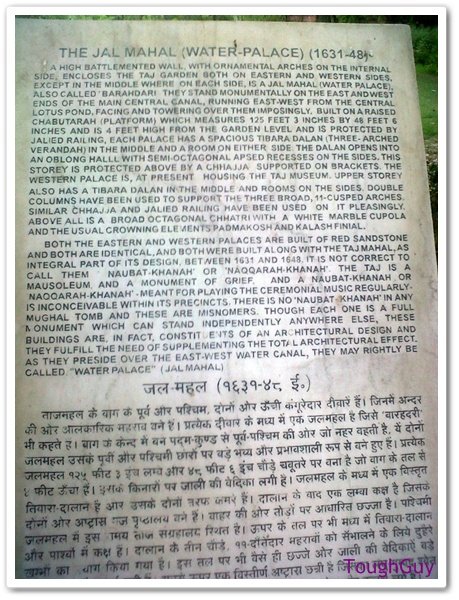 THE JAL MAHAL (WATER-PALACE) (1631-48)
A HIGH BATTLEMENTED WALL, WITH ORNAMENTAL ARCHES ON THE INTERNAL
SIDE, ENCLOSES THE TAJ GARDEN BOTH ON EASTERN AND WESTERN SIDES,
EXCEPT IN THE MIDDLE WHERE ON EACH SIDE, IS A JAL MAHAL (WATER PALACE),
ALSO CALLED 'BARAHDARI' THEY STAND MONUMENTALLY ON THE EAST AND WEST
ENDS OF THE MAIN CENTRAL CANAL, RUNNING EAST-WEST FROM THE CENTRAL
LOTUS POND, FACING AND TOWERING OVER THEM IMPOSINGLY. BUILT ON A RAISED
CHABUTARAH (PLATFORM) WHICH MEASURES 125 FEET 3 INCHES BY 48 FEET 6
INCHES AND IS 4 FEET HIGH FROM THE GARDEN LEVEL AND IS PROTECTED BY
JALIED RAILING, EACH PALACE HAS A SPACIOUS TIBARA DALAN (THREE- ARCHED
VERANDAH) IN THE MIDDLE AND A ROOM ON EITHER SIDE. THE DALAN OPENS INTO
AN OBLONG HALLL WITH SEMI-OCTAGONAL APSED RECESSES ON THE SIDES. THIS
STOREY IS PROTECTED ABOVE BY A CHHAJJA SUPPORTED ON BRACKETS. THE
WESTERN PALACE IS, AT PRESENT HOUSING THE TAJ MUSEUM. UPPER STOREY
ALSO HAS A TIBARA DALAN IN THE MIDDLE AND ROOMS ON THE SIDES. DOUBLE
COLUMNS HAVE BEEN USED TO SUPPORT THE THREE BROAD, 11-CUSPED ARCHES.
SIMILAR CHHAJJA AND JALIED RAILING HAVE BEEN USED ON IT PLEASINGLY.
ABOVE ALL IS A BROAD OCTAGONAL CHHATRI WITH A WHITE MARBLE CUPOLA
AND THE USUAL CROWNING ELEMENTS PADMAKOSH AND KALASH FINIAL.
BOTH THE EASTERN AND WESTERN PALACES ARE BUILT OF RED SANDSTONE
AND BOTH ARE IDENTICAL, AND BOTH WERE BUILT ALONG WITH THE TAJ MAHAL, AS
INTEGRAL PART OF ITS DESIGN, BETWEEN 1631 AND 1648. IT IS NOT CORRECT TO
CALL THEM 'NAUBAT-KHANAH' OR 'NAQQARAH-KHANAH'. THE TAJ IS A
MAUSOLEUM, AND A MONUMENT OF GRIEF, AND A NAUBAT-KHANAH OR
NAQQARAH-KHANAH - MEANT FOR PLAYING THE CEREMONIAL MUSIC REGULARLY-
IS INCONCEIVABLE WITHIN ITS PRECINCTS. THERE IS NO 'NAUBAT-KHANAH' IN ANY
MUGHAL TOMB AND THESE ARE MISNOMERS. THOUGH EACH ONE IS A FULL
MONUMENT WHICH CAN STAND INDEPENDENTLY ANYWHERE ELSE, THESE
BUILDINGS ARE, IN FACT, CONSTITUENTS OF AN ARCHITECTURAL DESIGN AND
THEY FULFILL THE NEED OF SUPPLEMENTING THE TOTAL ARCHITECTURAL EFFECT.
AS THEY PRESIDE OVER THE EAST-WEST WATER CANAL, THEY MAY RIGHTLY BE
CALLED "WATER PALACE" (JAL MAHAL)
जल-महल (१६३१-४८ ई.)
ताजमहल के बाग के पूर्व और पश्चिम, दोनों और ऊँची कंगूरेदार दीवारें हैं। जिनमें अन्दर
की ओर आलंकारिक महराब बने हैं। प्रत्येक दीवार के मध्य में एक जलमहल है जिसे 'बारहदरी'
भी कहते हैं। बाग के केन्द्र में बने पदम-कुण्ड से पूर्व-पश्चिम की ओर जो नहर बहती है, ये दोनों
जलमहल उसके पूर्वी और पश्चिमी छोरों पर बड़े भव्य और प्रभावशाली रूप से बने हुए हैं। प्रत्येक
जलमहल १२५ फीट ३ इंच लम्बे और ४८ फीट ६ इंच चौड़े चबूतरे पर बना है जो बाग के तल से
४ फीट ऊँचा है। इसके किनारों पर जाली की वेदिका लगी है। जलमहल के मध्य में एक विस्तृत
तिवारा-दालान है और उसके दोनों तरफ कमरे हैं। दालान के बाद एक लम्बा कक्ष है जिसके
दोनों ओर अष्टास्र पृष्ठालय बने हैं। बाहर की ओर तोड़ों पर आधारित छज्जा है। पश्चिमी
जलमहल में इस समय ताज संग्रहालय स्थित है। ऊपर के तल पर भी मध्य में तिवारा-दालान
और पार्श्वों में कक्ष है। दालान के तीन चौड़े, ११-दाँतेदार महराबों को संभालने के लिये दुहरे
खम्भों का प्रयोग किया गया है। इस तल पर भी वैसे ही छज्जे और जाली की वेदिकाएँ बड़े
एक विस्तीर्ण अष्टास्र छत्री है
ToughGuy